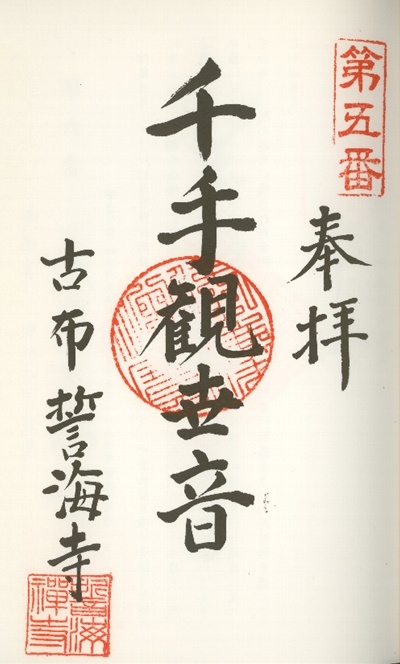 第五番
奉拝
千手観世音
古布 誓海寺
誓海禅寺